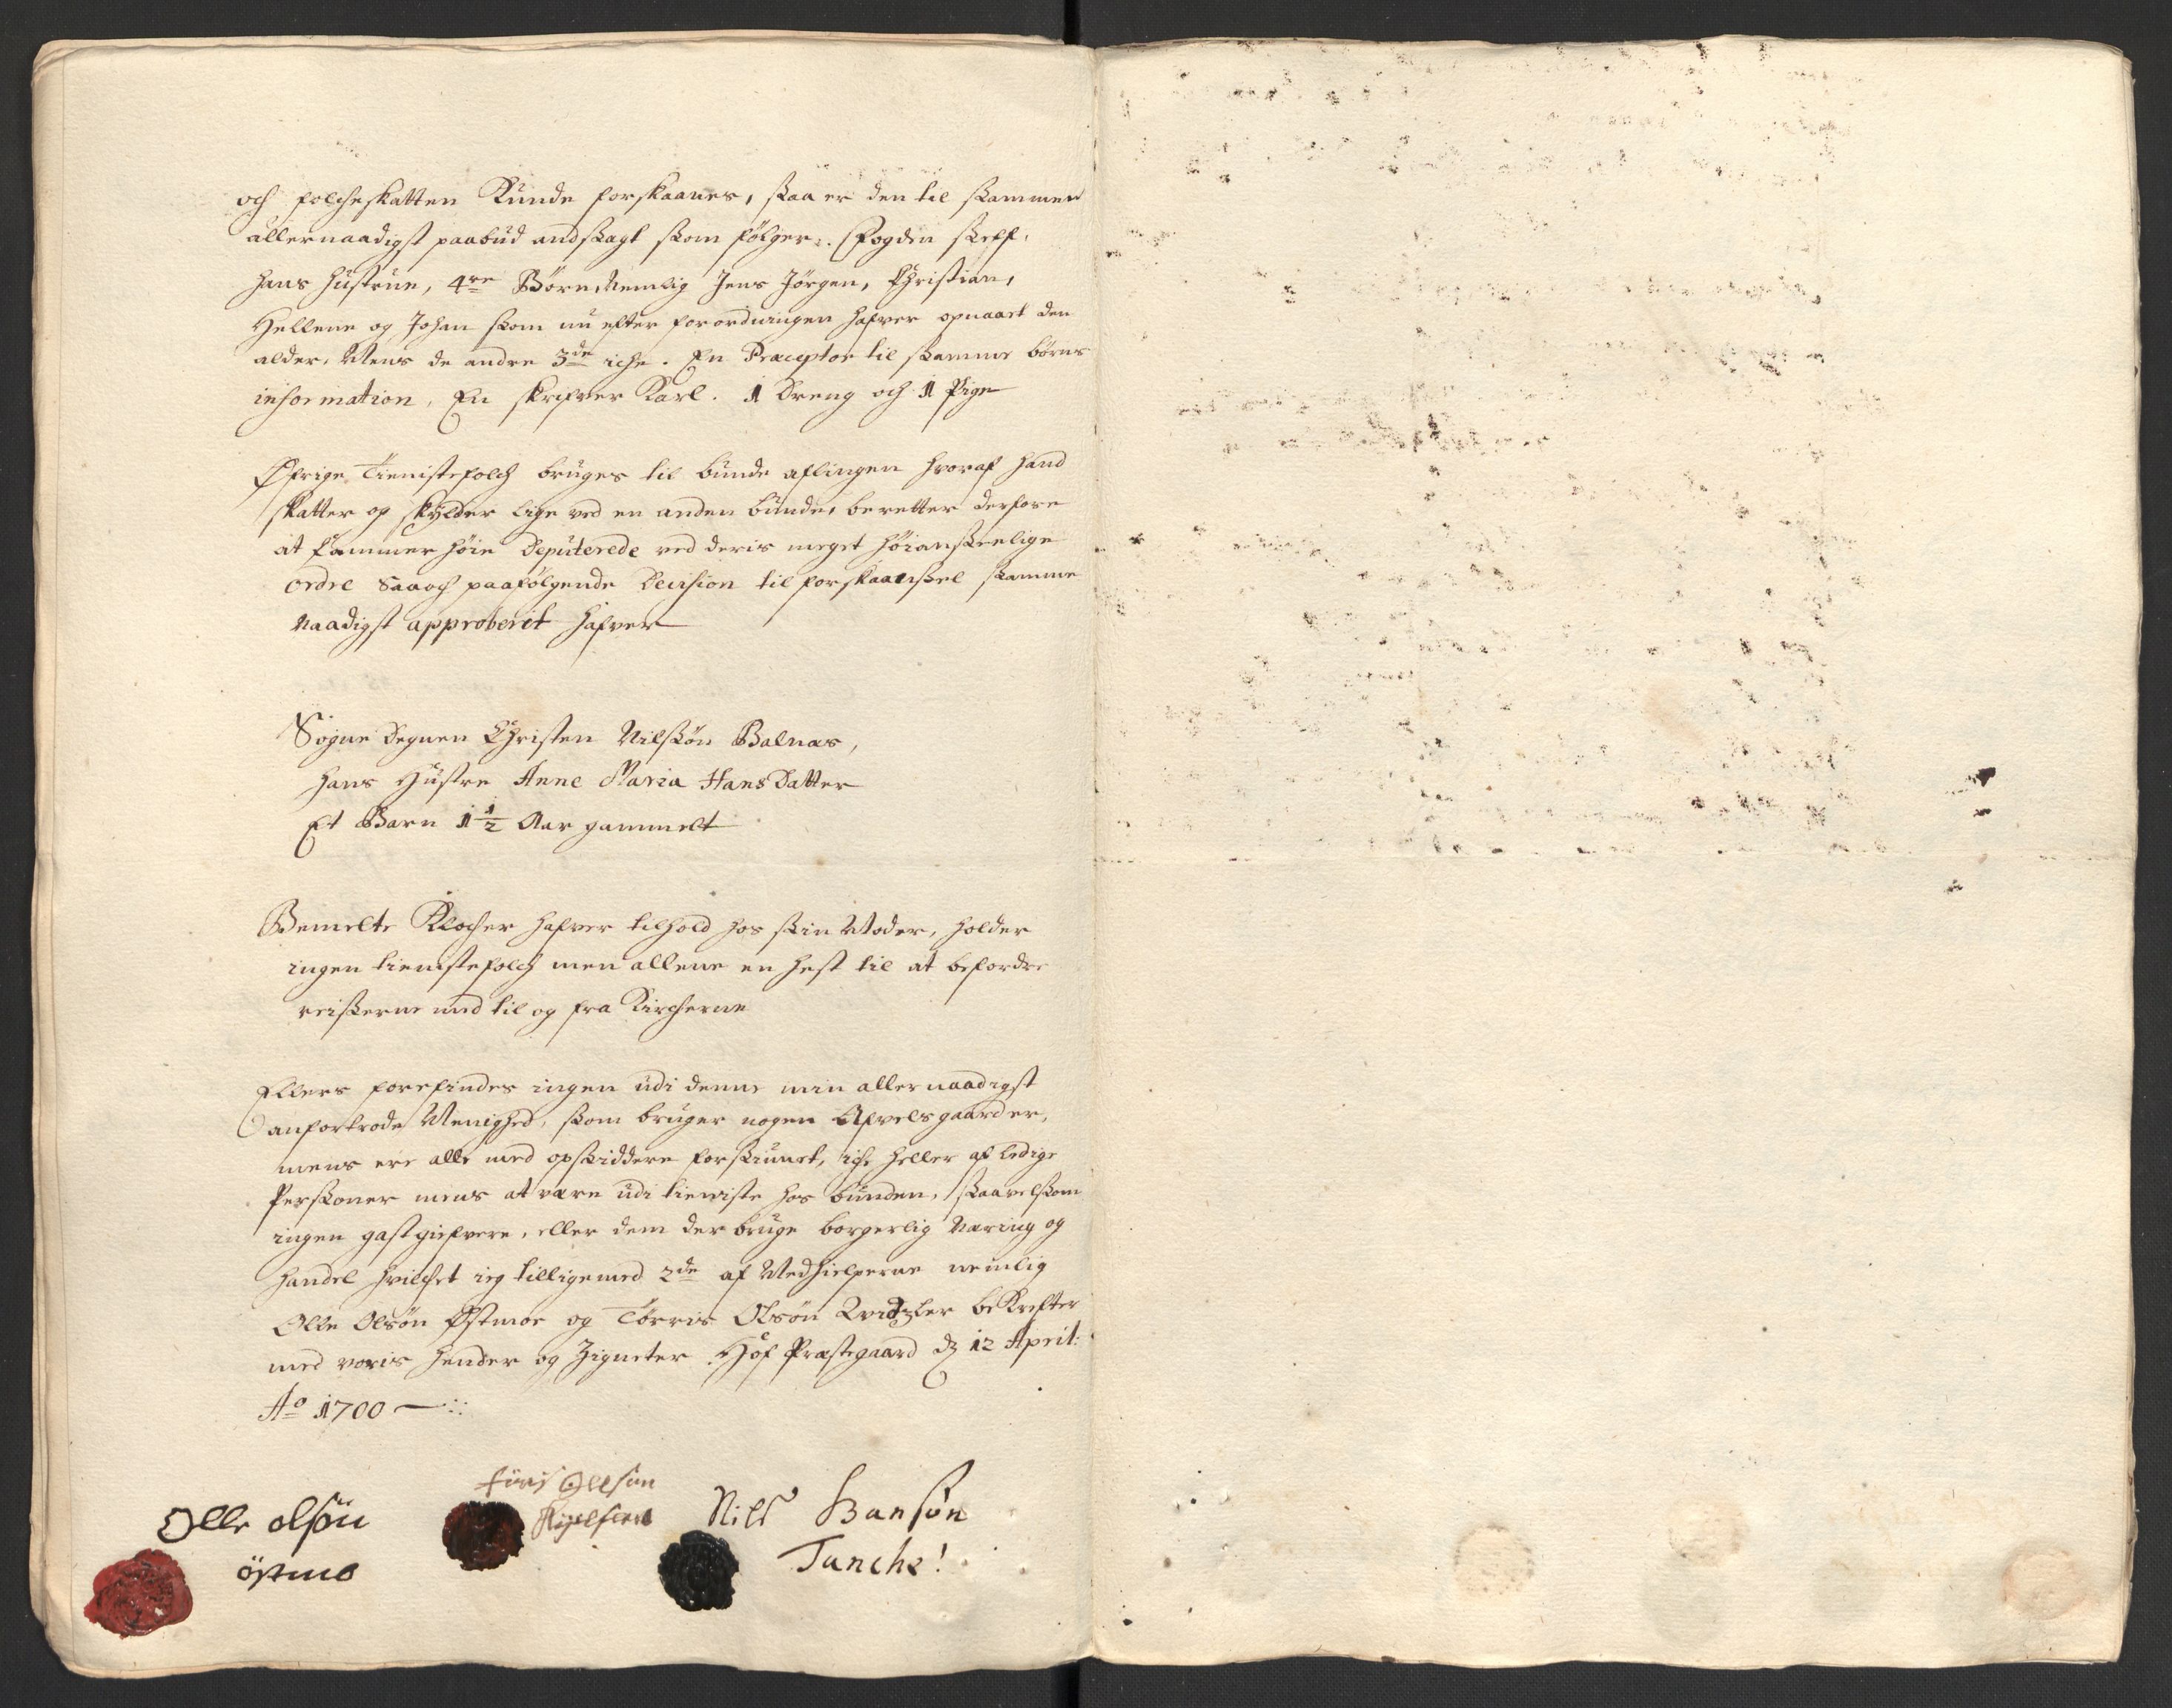 och folcheskatten Kunde forskaanes, saa er den til sammen
allernaadigst paabud andsagt som fölger: Fogden self,
hans hustrue, 4re Börn Nemlig Jens Jörgen, Christian,
Hellene og Johan som nu efter forordningen hafver opnaaet den
alder, Mens de andre 3de iche. En Præceptor til samme börns
information, En skrifver Karl. 1 Dreng och 1 Pige
Øfrige Tienistefolch bruges til bunde aflingen hvoraf hand
skatter og skylder lige ved en anden bunde, beretter derfore
at Cammer höie Deputerede ved deris meget höianseelige
ordre saaoch paafölgende Decision til forskaansel samme
Naadigst approberit hafver
Sogne Degnen Christen Nilsön Balnas,
hans Hustre Anne Maria HansDatter
Et Barn 1 1/2 Aar gammelt
Bemelte Klocher hafver tilhold hos sin Moder, holder
ingen tienistefolch men allene en hest til at befordre
reiserne med til og fra Kircherne
Ellers forefindes ingen udi denne min allernaadigst
anfortrode Menighed, som bruger nogen Afvelsgaarder,
mens ere alle med opsiddere forsiunet, iche heller af ledige
Persooner mens at være udi tieniste hos bunden, saavelsom
ingen gastgiefvere, eller dem der bruge borgerlig Næring og
handel hvilchet ieg tilligemed 2de af Medhielperne nemlig
Olle Olsön Östmoe og Törris Olsön bekrefter
med voris hender og Zigneter Hof Præstegaard d 12 April:
Ao 1700
Olle olsön
östmo
Töris Ollsön
Nils Hansön
Tanche!